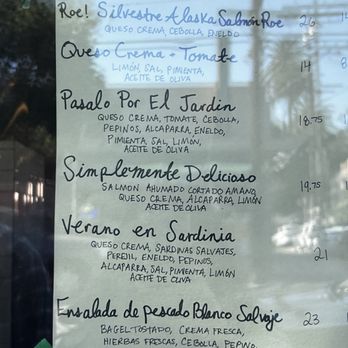 Roe! Silvestre Alaska Salmón Roe 26
QUESO CREMA, CEBOLLA, ENELDO
Queso Crema + Tomate 14
LIMÓN, SAL, PIMIENTA, 8
ACEITE DE OLIVA
Pasalo Por El Jardin
QUESO CREMA, TOMATE, CEBOLLA, 18.75
PEPINOS, ALCAPARRA, ENELDO,
PIMIENTA, SAL, LIMÓN,
ACEITE DE OLIVA
Simplemente Delicioso
SALMON AHUMADO CORTADO A MANO, 19.75
QUESO CREMA, ALCAPARRA, LIMÓN
ACEITE DE OLIVA
Verano en Sardinia
QUESO CREMA, SARDINAS SALVAJES, 21
PEREJIL, ENELDO, PEPINOS,
ALCAPARRA, SAL, PIMIENTA, LIMÓN
ACEITE DE OLIVA
Ensalada de pescado Blanco Salvaje 23
BAGEL TOSTADO, CREMA FRESCA,
HIERBAS FRESCAS, CEBOLLA, PEPINO,